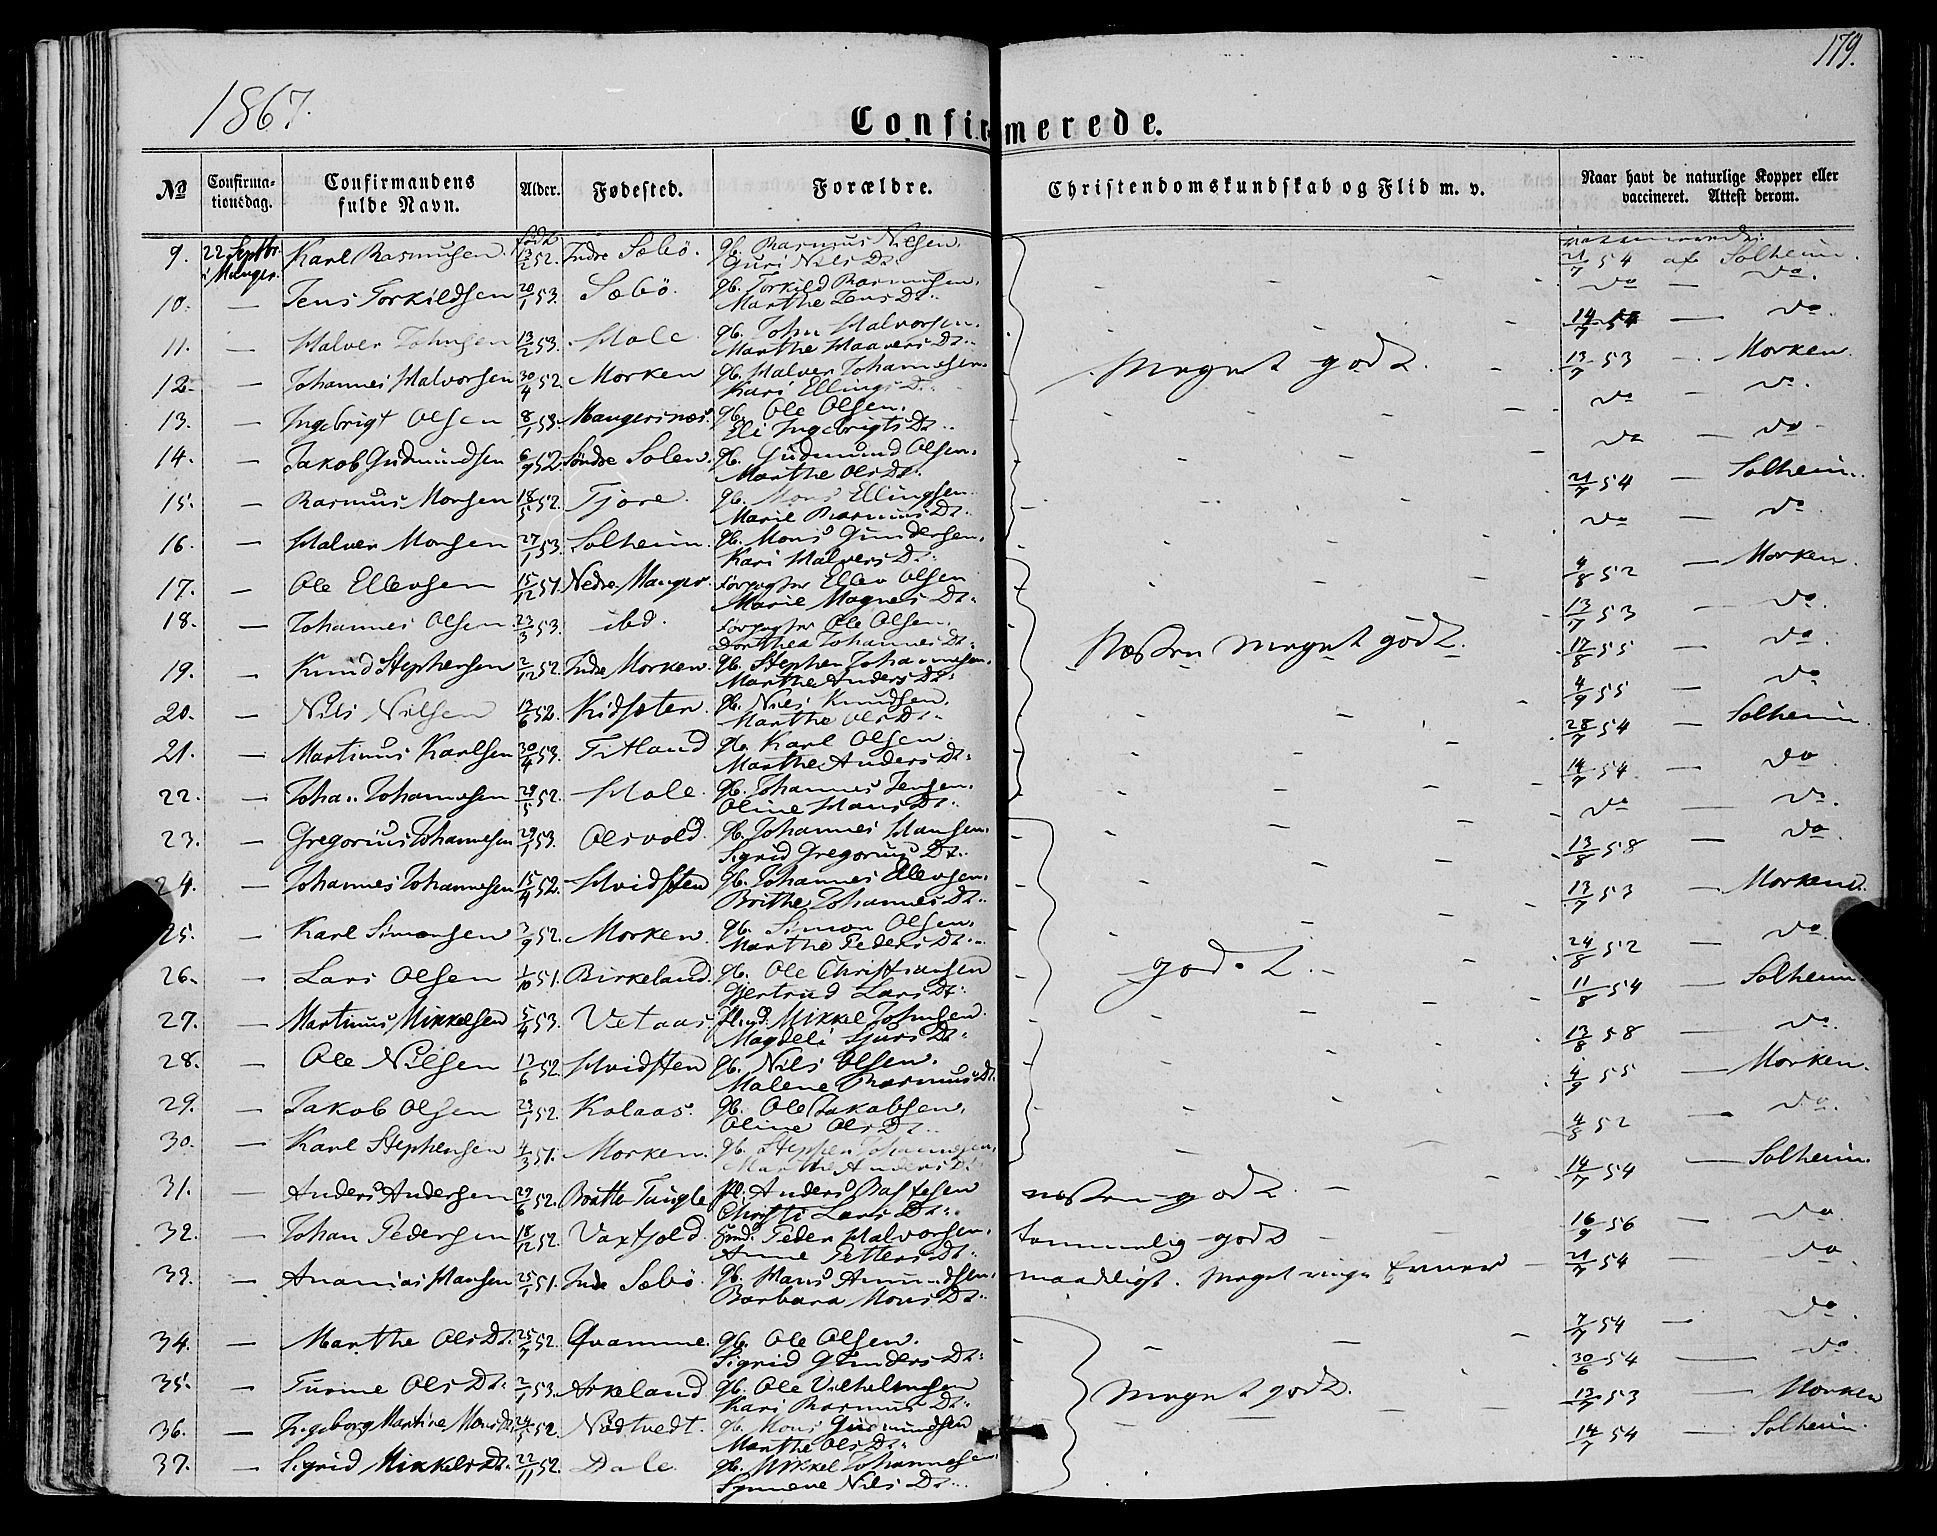 179.
1867.
Confirmerede.
No Confirmationsdag. Confirmandens fulde Navn. Alder. Fødested. Forældre. Christendomskundskab og Flid m. v. Naar havt de naturlige Kopper eller vaccineret. Attest derom.
9. 22 Septbr i Manger. Karl Rasmusen. født 13/2 52. Indre Sæbö. gb. Rasmus Nilsen Guri Nils Dt. 21/7 54 af Solheim.
10. — Jens Torkildsen 20/1 53. Sæbö. gb. Torkild Rasmusen. Marthe Jens Dt. do — do.
11. — Halvor Johnsen 13/2 53. Hole gb. John Halvorsen. Marthe Haavers Dt. 14/7 54 — do.
12. — Johannes Halvorsen 30/4 52. Morken gb. Halver Johannesen. Kari Ellings D. Meget godt. 13/7 53 — Morken.
13. — Ingebrigt Olsen 8/1 53. Mangersnæs. gb. Ole Olsen. Eli Ingebrigts Dt. do do.
14. — Jakob Gudmundsen 6/9 52. Söndre Solem. gb. Gudmund Olsen. Marthe Ols Dt. do — do
15. — Rasmus Monsen 18/5 52. Tjore. gb. Mons Ellingsen. Marie Rasmus Dt. 21/7 54 — Solheim.
16. — Halver Monsen 27/1 53. Solheim. gb. Mons Gundersen. Kari Halvers D. do — do.
17. — Ole Ellevsen 15/12 51. Nedre Manger. Forpagter Ellev Olsen Marie Magnes Dt. 4/8 52 — Morken.
18. — Johannes Olsen. 23/3 53. ibd. Forpagter Ole Olsen. Dorthea Johannes Dt. Næsten meget godt. 13/7 53 — do.
19. — Knud Stephensen 2/12 52. Indre Morken. gb. Stephen Johannesen. Marthe Anders Dt. 17/8 55 — do
20. — Nils Nilsen 12/6 52. Kidsæten. gb. Nils Knudsen. Marthe Ols Dt. 4/9 55 — do
21. — Martinus Karlsen 30/4 53. Titland gb. Karl Olsen. Marthe Anders Dt. 28/7 54 — Solheim.
22. — Johan Johannesen 29/5 52. Hole. gb. Johannes Jensen. Oline Hans Dt. 14/7 54 — do
23. — Gregorius Johannesen 29/1 53. Olsvold. gb. Johannes Hansen. Sigrid Gregorius Dt. do — do.
24. — Johannes Johannesen 15/4 52. Hvidsten gb. Johannes Ellevsen. Brithe Johannes Dt. 13/8 58 — do
25. — Karl Simonsen 3/9 52. Morken. gb. Simon Olsen. Marthe Peders Dt. godt. 13/7 53 — Morken.
26. — Lars Olsen 1/10 51. Birkeland. gb. Ole Christiansen Gjertrud Lars Dt. 24/8 52 — do
27. — Martinus Mikkelsen 5/4 53. Vetaas. Mikkel Johnsen. Magdeli Sjurs Dt. 11/8 54 — Solheim
28. — Ole Nilsen 17/6 52. Hvidsten gb. Nils Olsen. Malene Rasmus Dt. 13/8 58 — do.
29. — Jakob Olsen 23/1 52. Kolaas. gb. Ole Jakobsen. Oline Ols Dt. 4/9 55 — Morken.
30. — Karl Stephensen 4/3 51. Morken. gb. Stephen Johannesen. Marthe Anders Dt. 4/8 52 — do.
31. — Anders Andersen 29/6 52. Bratte Tungle Pl. Anders Bastesen Christi Lars Dt. næsten godt. 14/7 54 — Solheim.
32. — Johan Pedersen 18/12 52. Vaxfjold. Peder Halvorsen. Anne Petters Dt. temmelig godt 16/9 56 — do
33. — Ananias Hansen 25/1 51. Indre Sæbö. gb. Hans Amundsen. Barbara Mons Dt. maadeligt. Meget ringe Evner 21/7 54 — do
34. — Marthe Ols Dt. 25/7 52. Qvamme. gb. Ole Olsen. Sigrid Gunders Dt. 7/7 54 — do
35. — Turine Ols Dt. 2/1 53. Askeland gb. Ole Vilhelmsen Kari Rasmus Dt. Meget godt. 30/6 54 — do
36. — Ingeborg Martine Mons Dt. 24/5 52. Nödtvedt. gb. Mons Gudmundsen Marthe Ols Dt. 13/7 53 Morken
37. — Sigrid Mikkels Dt. 22/11 52. Dale. gb. Mikkel Johannesen. Synneve Nils Dt. 14/7 54 — Solheim.